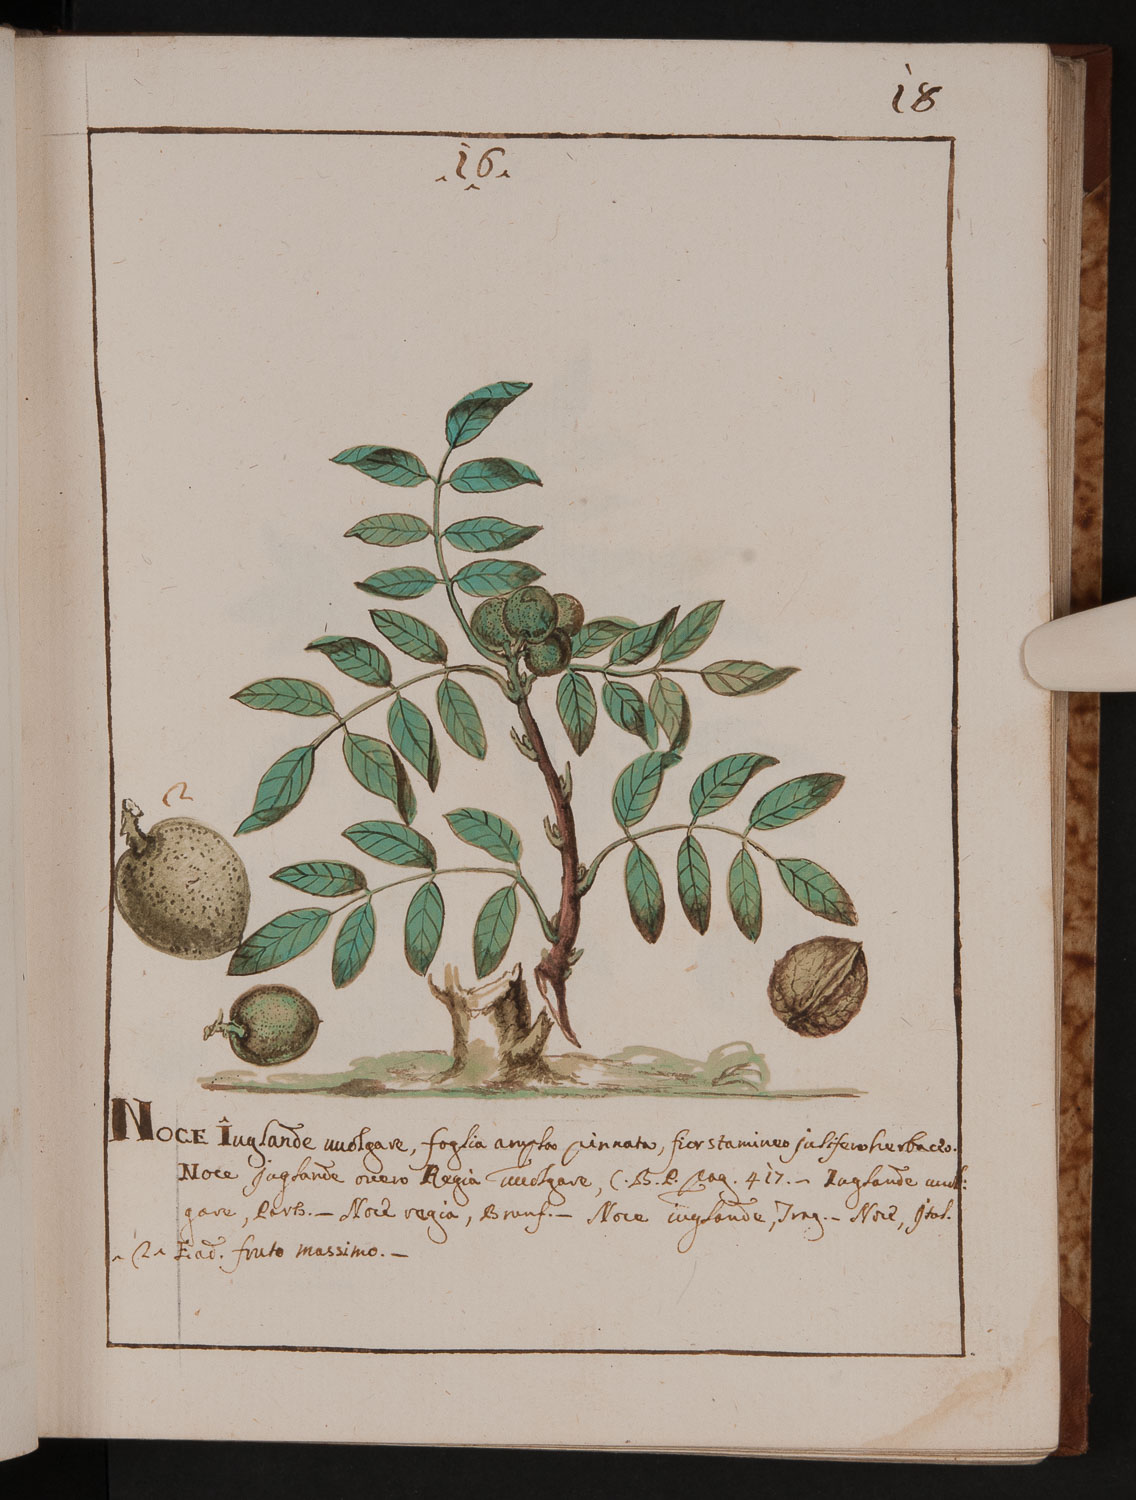 i8
.i6.
2
NOCE Iuglande uuolgare, foglia ampla pinnata, fior stamineo julifero herbaceo.
Noce juglande ouero Regia uuolgare, C.B.P. pag. 4i7. – Iuglande uuol:
gare, Park. – Noce regia, Brunf. – Noce iuglande, Trag. – Noce, Ital.
2 Ead. fruto massimo. –